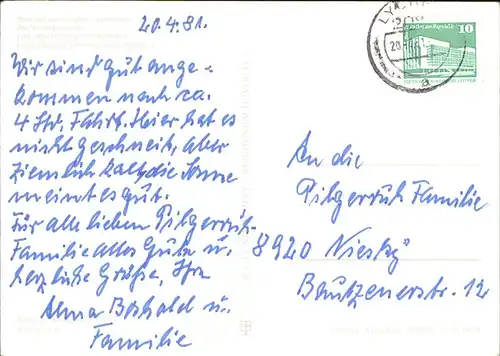 20.4.81.
Wir sind gut ange-
kommen nach ca.
4 Std. Fahrt. Hier hat es
nicht geschneit, aber
ziemlich kalt, die Sonne
meint es gut.
Für alle lieben Pilgerruh-
Familie alles Gute u.
herzliche Grüße, Ihre
Alma u.
Familie
10
An die
Pilgerruh Familie
8920 Niesky
Bautzenerstr. 12